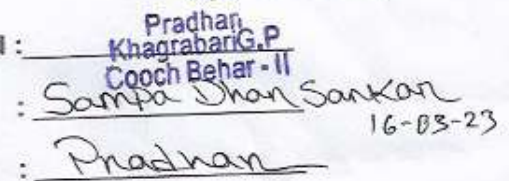 Pradhan
: KhagrabariG.P
Cooch Behar - II
: Sampa Dhan Sarkar
16-03-23
: Pradhan